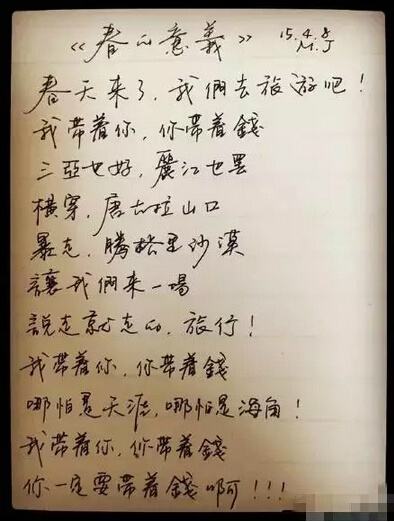 《春的意義》 15.4.8
M.J
春天来了，我們去旅游吧！
我带着你，你带着錢
三亞也好，麗江也罢
横穿，唐古拉山口
暴走，腾格里沙漠
讓我們来一場
說走就走的，旅行！
我带着你，你带着錢
哪怕是天涯，哪怕是海角！
我带着你，你带着錢
你一定要带着錢啊！！！